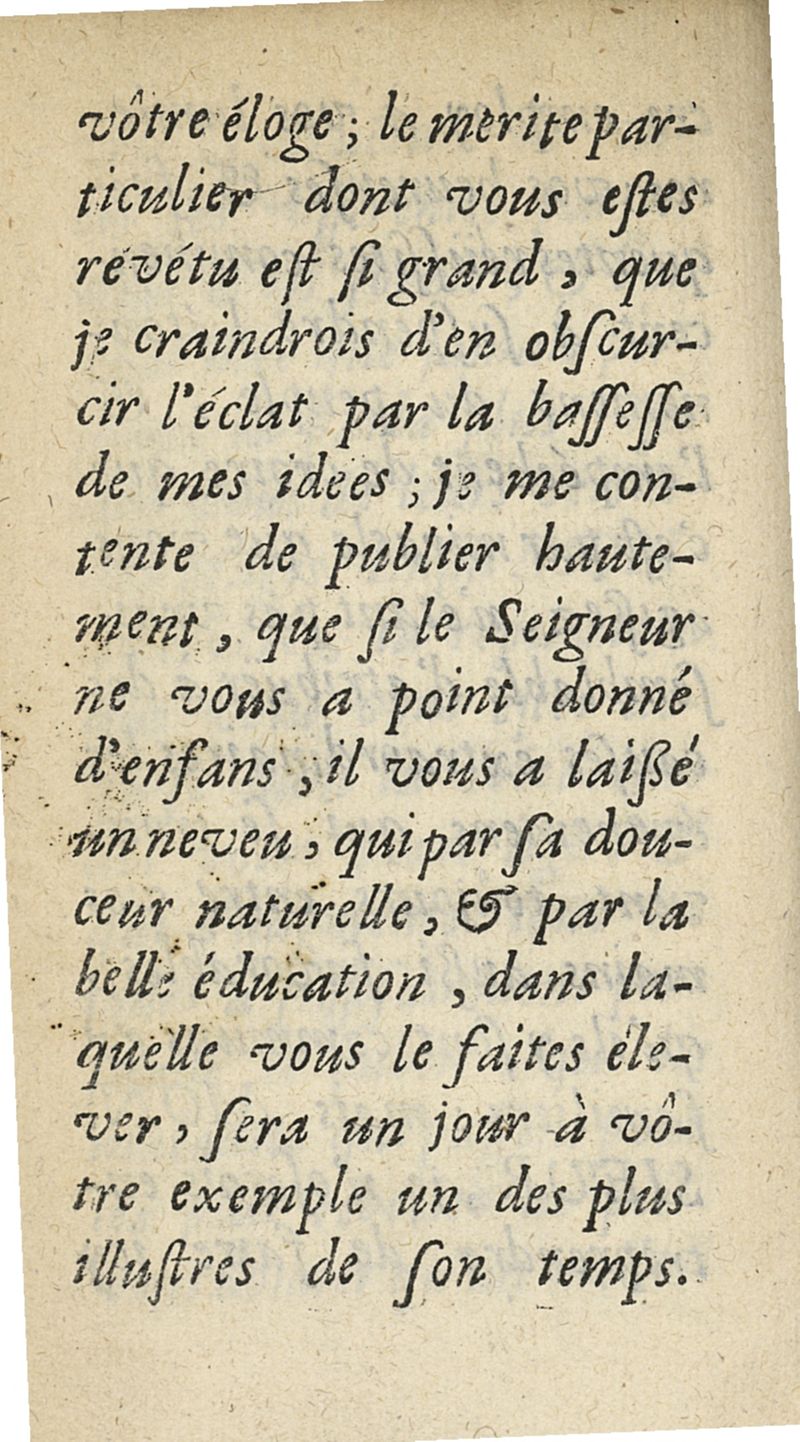 vôtre éloge ; le merite par-
ticulier dont vous eſtes
révétu eſt ſi grand , que
je craindrois d'en obſcur-
cir l'éclat par la baſſeſſe
de mes idées ; je me con-
tente de publier haute-
ment , que ſi le Seigneur
ne vous a point donné
d'enfans , il vous a laißé
un neveu , qui par ſa dou-
ceur naturelle , & par la
belle éducation , dans la-
quelle vous le faites éle-
ver , ſera un jour à vô-
tre exemple un des plus
illuſtres de ſon temps.